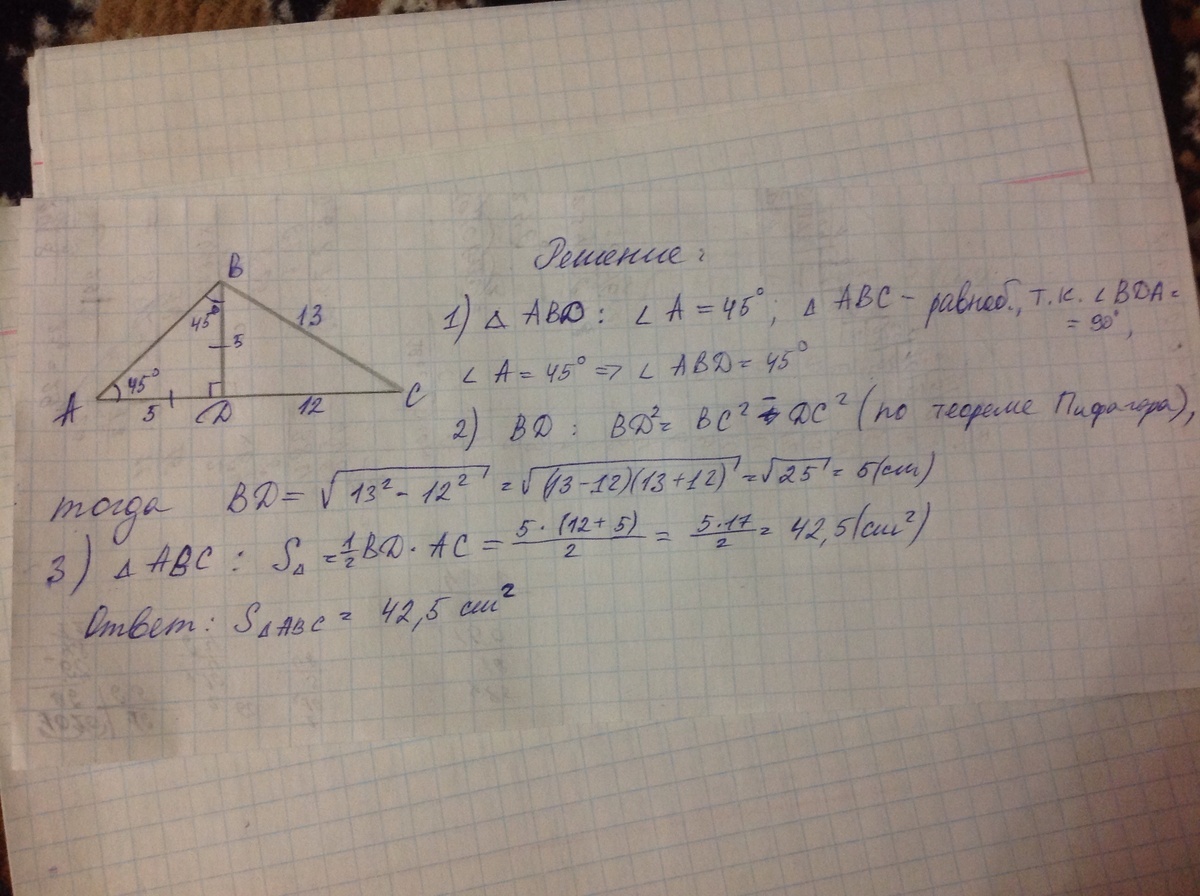 Решение:
B
45°
5
13
A
45°
5
D
12
C
1) △ ABD: ∠ A = 45°; △ ABC – равноб., т.к. ∠ BDA =
= 90°,
∠ A = 45° => ∠ ABD = 45°
2) BD : BD² = BC² - DC² (по теореме Пифагора),
тогда BD = √13² - 12² = √(13-12)(13+12) = √25 = 5(см)
3) △ ABC : S△ = 1/2 BD · AC = 5·(12+5)/2 = 5·17/2 = 42,5(см²)
Ответ: S△ABC = 42,5 см²